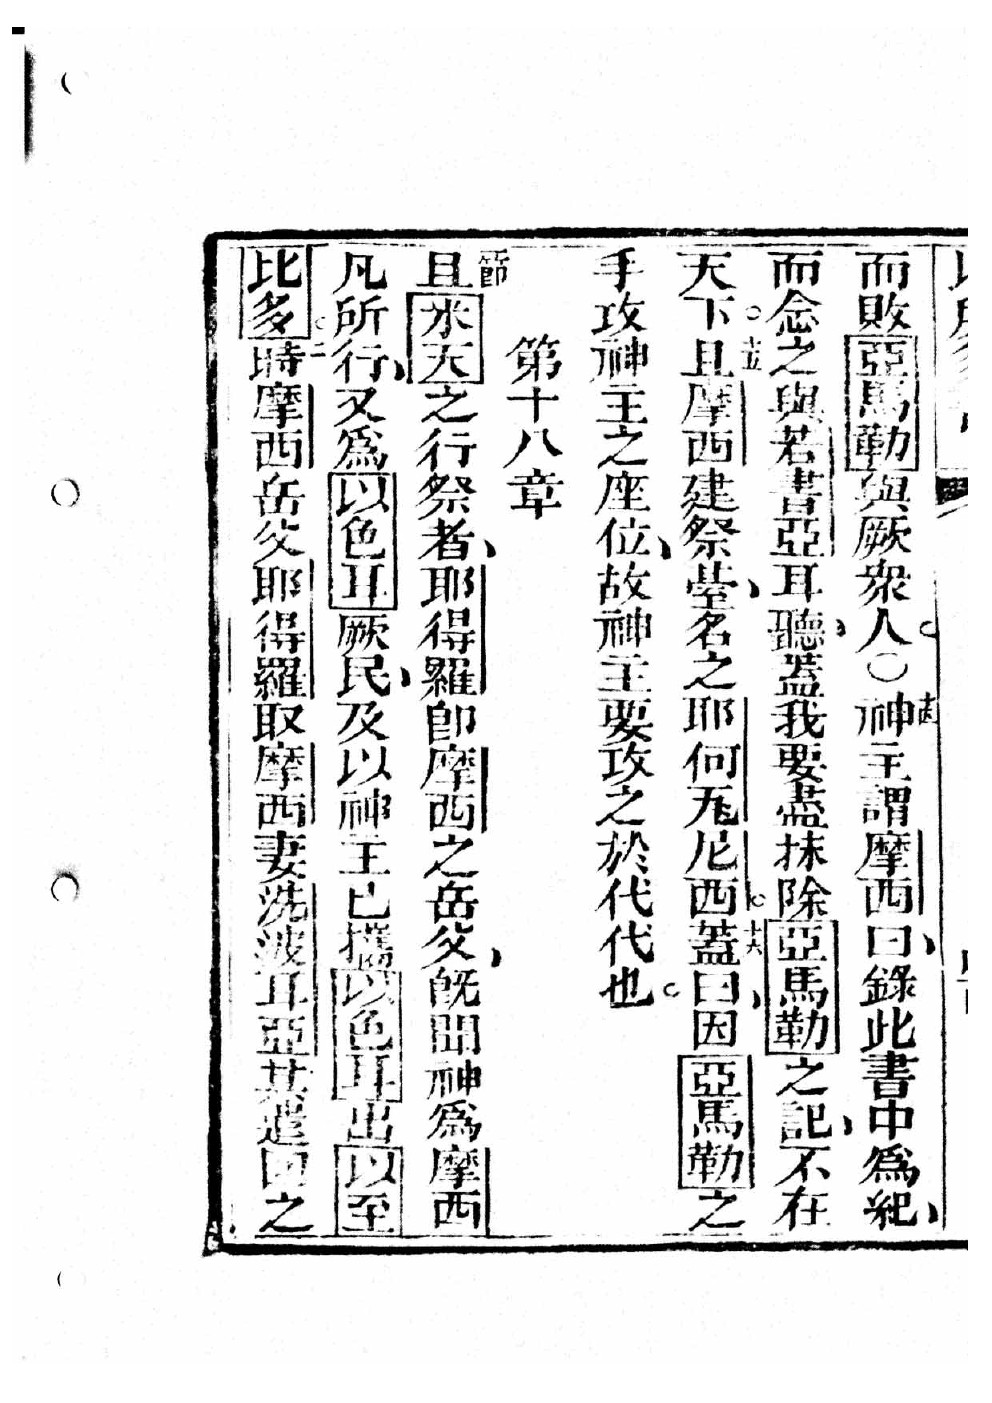 而敗亞馬勒與厥衆人。〇十四神主謂摩西、曰錄此書中爲紀、
而念之與若書亞耳聽、蓋我要盡抹除亞馬勒之記、不在
天下。十五且摩西建祭䑓、名之耶何𠀾尼西。十六蓋曰、因亞馬勒之
手攻神主之座位、故神主要攻之於代代也。
第十八章
節且氷天之行祭者、耶得羅卽摩西之岳父、旣聞神爲摩西
凡所行、又爲以色耳厥民、及以神主已擕以色耳出以至
比多。二時摩西岳父耶得羅取摩西妻洗波耳亞其遣回之